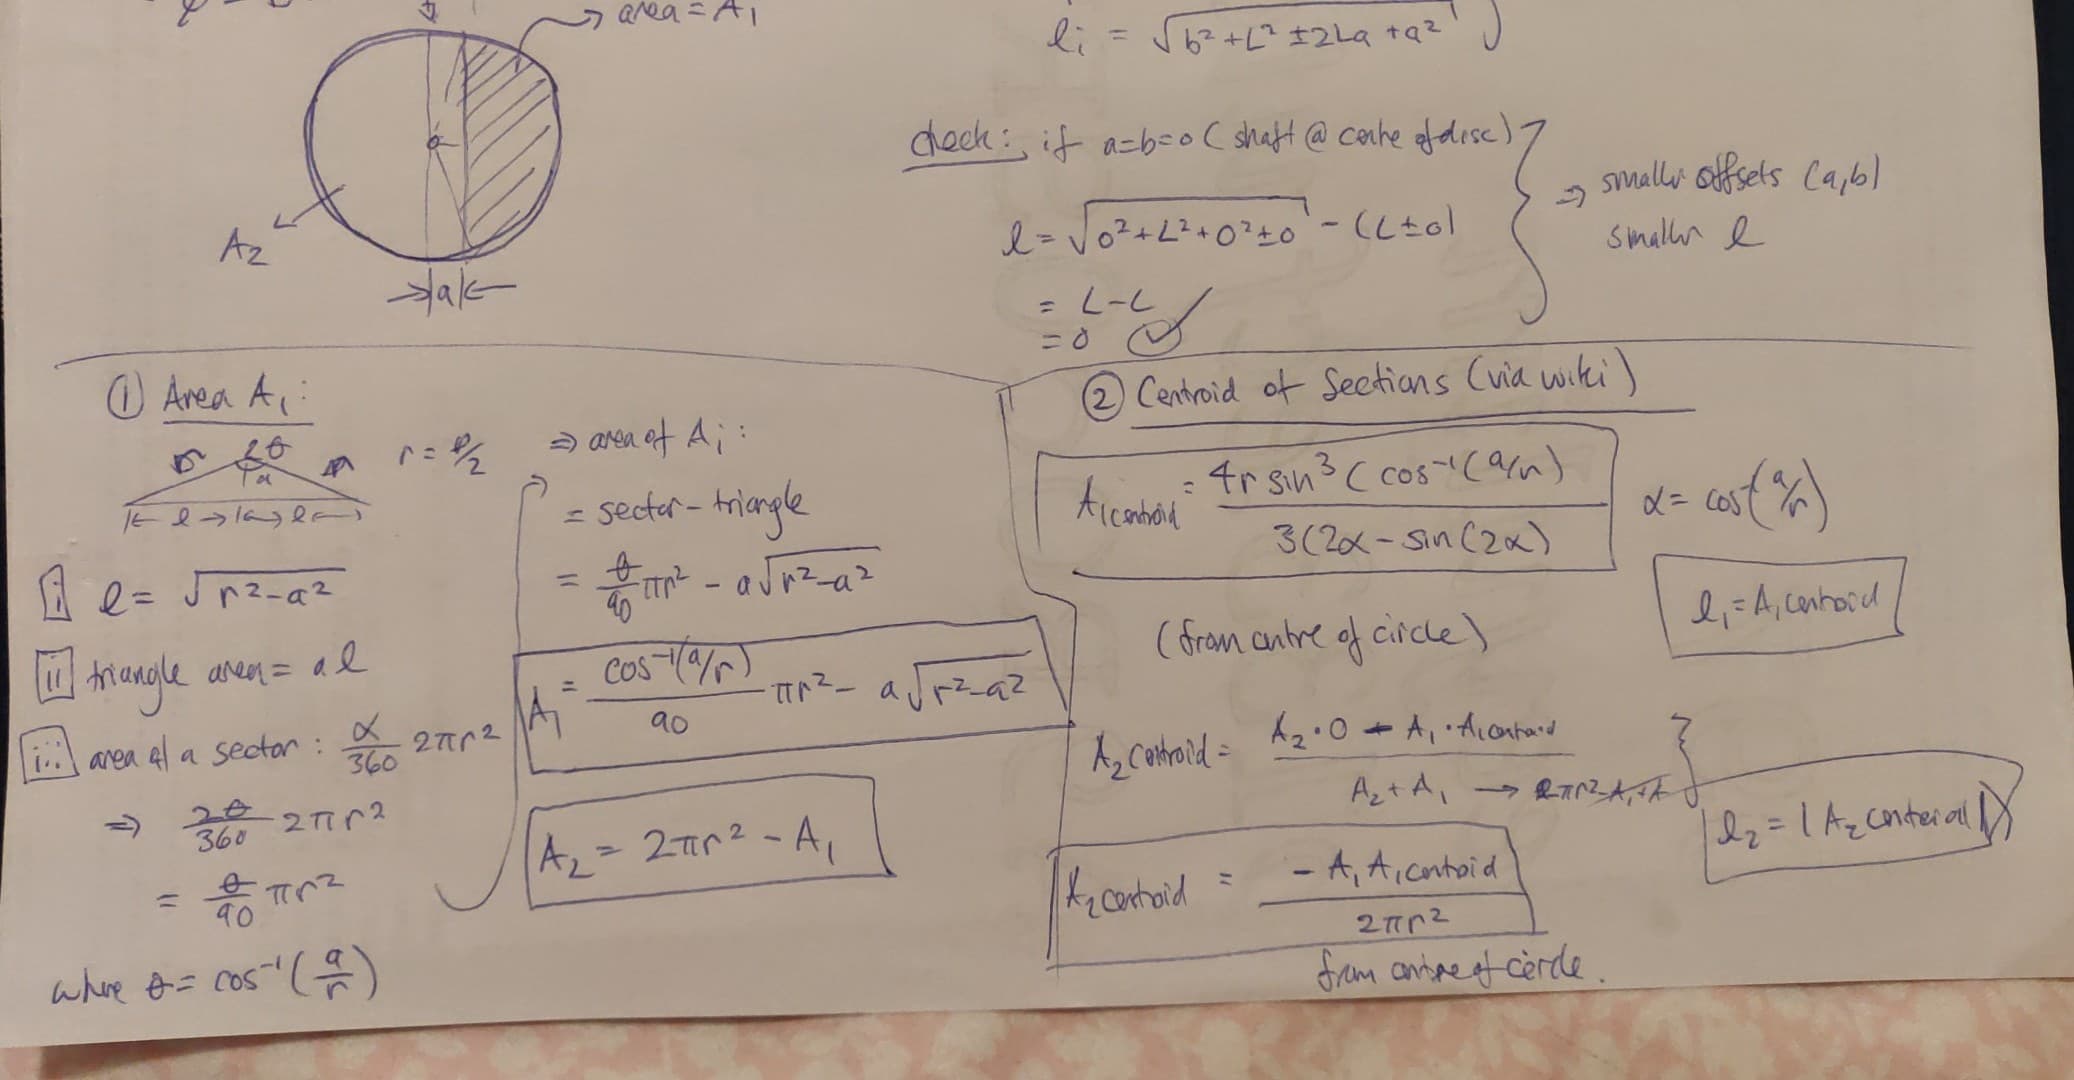 → area = A₁
A₂
→|a|←
lᵢ = √(b² + L² ± 2La + a²)
check: if a=b=0 (shaft @ centre of disc)
l = √(0² + L² + 0² ± 0) - (L ± 0)
= L - L
= 0 ✓
⇒ smaller offsets (a,b)
smaller l
① Area A₁:
2θ
a
|← l →|← l →|
r = D/2
i l = √(r²-a²)
ii triangle area = a l
iii area of a sector: α/360 2πr²
⇒ 2θ/360 2πr²
= θ/90 πr²
where θ = cos⁻¹(a/r)
⇒ area of A₁:
= sector - triangle
= θ/90 πr² - a√(r²-a²)
A₁ = cos⁻¹(a/r)/90 πr² - a√(r²-a²)
A₂ = 2πr² - A₁
② Centroid of Sections (via wiki)
A₁centroid = 4r sin³(cos⁻¹(a/r) / 3(2α - sin(2α)
α = cos(a/r)
l₁ = A₁centroid
(from centre of circle)
A₂centroid = A₂·0 - A₁·A₁centroid / A₂ + A₁ → 2πr² - A₁ + A
l₂ = |A₂centeroid|
A₂centroid = -A₁A₁centroid / 2πr²
from centre of circle.